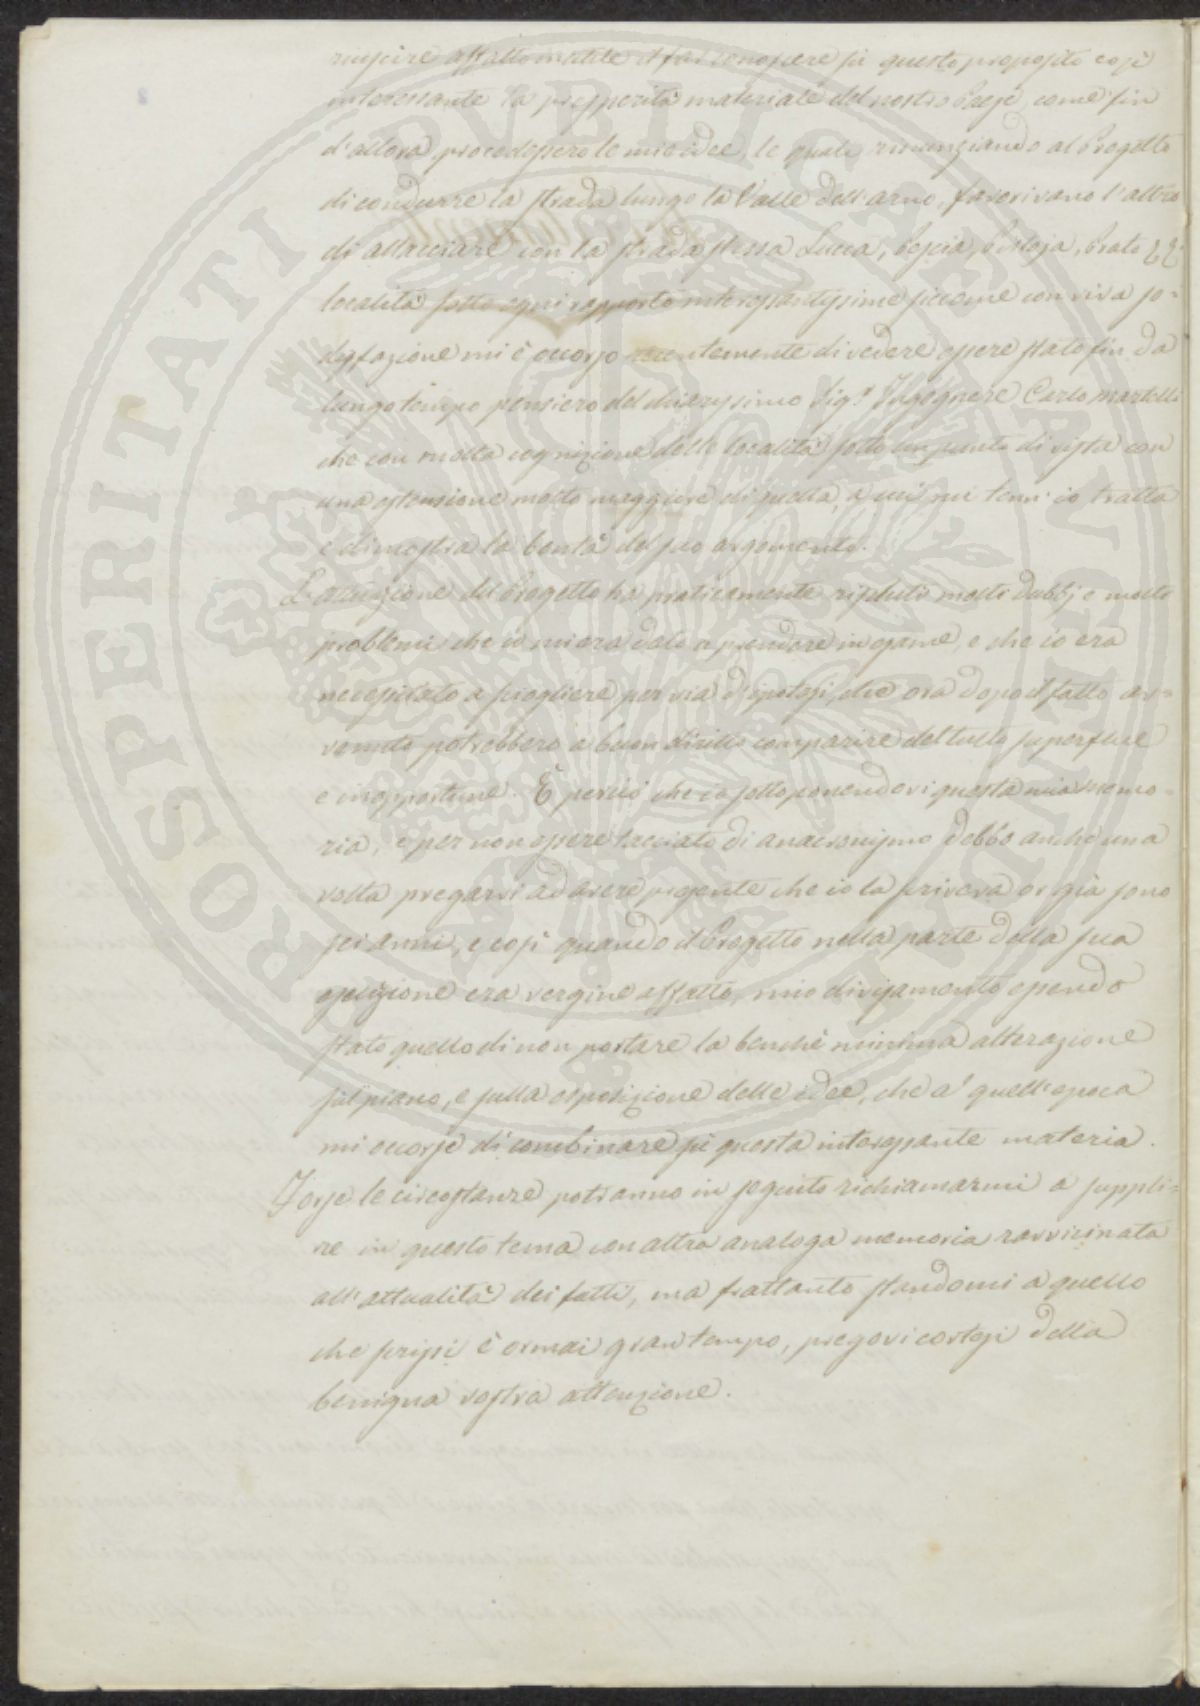 riuscire affatto inutile il far conoscere su questo proposito così
interessante la prosperità materiale del nostro Paese, come fin
d'allora procedessero le mie idee, le quali rinunziando al Progetto
di condurre la strada lungo la Valle dell'Arno, favorivano l'altro
di allacciare con la strada stessa Lucca, Pescia, Pistoja, Prato
località sotto ogni rapporto interessantissime siccome con viva so-
disfazione mi è occorso recentemente di vedere essere stato fin da
lungo tempo pensiero del chiarissimo Sig.r Ingegnere Carlo Martelli
che con molta cognizione delle località sotto un punto di vista con
una estensione molto maggiore di quella, a cui mi tenn' io tratta
e dimostra la bontà del suo argomento.
L'attuazione del Progetto ha praticamente risoluti molti dubbj e molti
problemi che io mi era dato a prendere in esame, e che io era
necessitato a sciogliere per via d'ipotesi, che ora dopo il fatto av-
venuto potrebbero a buon diritto comparire del tutto superflue
e inopportune. È perciò che io sottoponendovi questa mia memo-
ria, e per non essere tacciato di anacronismo debbo anche una
volta pregarvi ad avere presente che io la scriveva or già sono
sei anni, e così quando il Progetto nella parte della sua
esecuzione era vergine affatto, mio divisamento essendo
stato quello di non portare la benchè minima alterazione
sul piano, e sulla esposizione delle idee, che a quell'epoca
mi occorse di combinare su questa interessante materia.
Forse le circostanze potranno in seguito richiamarmi a suppli-
re in questo tema con altra analoga memoria ravvicinata
all'attualità dei fatti, ma frattanto standomi a quello
che scrissi è ormai gran tempo, pregovi cortesi della
benigna vostra attenzione.
PROSPERITATI PVBLICAE AVGENDAE